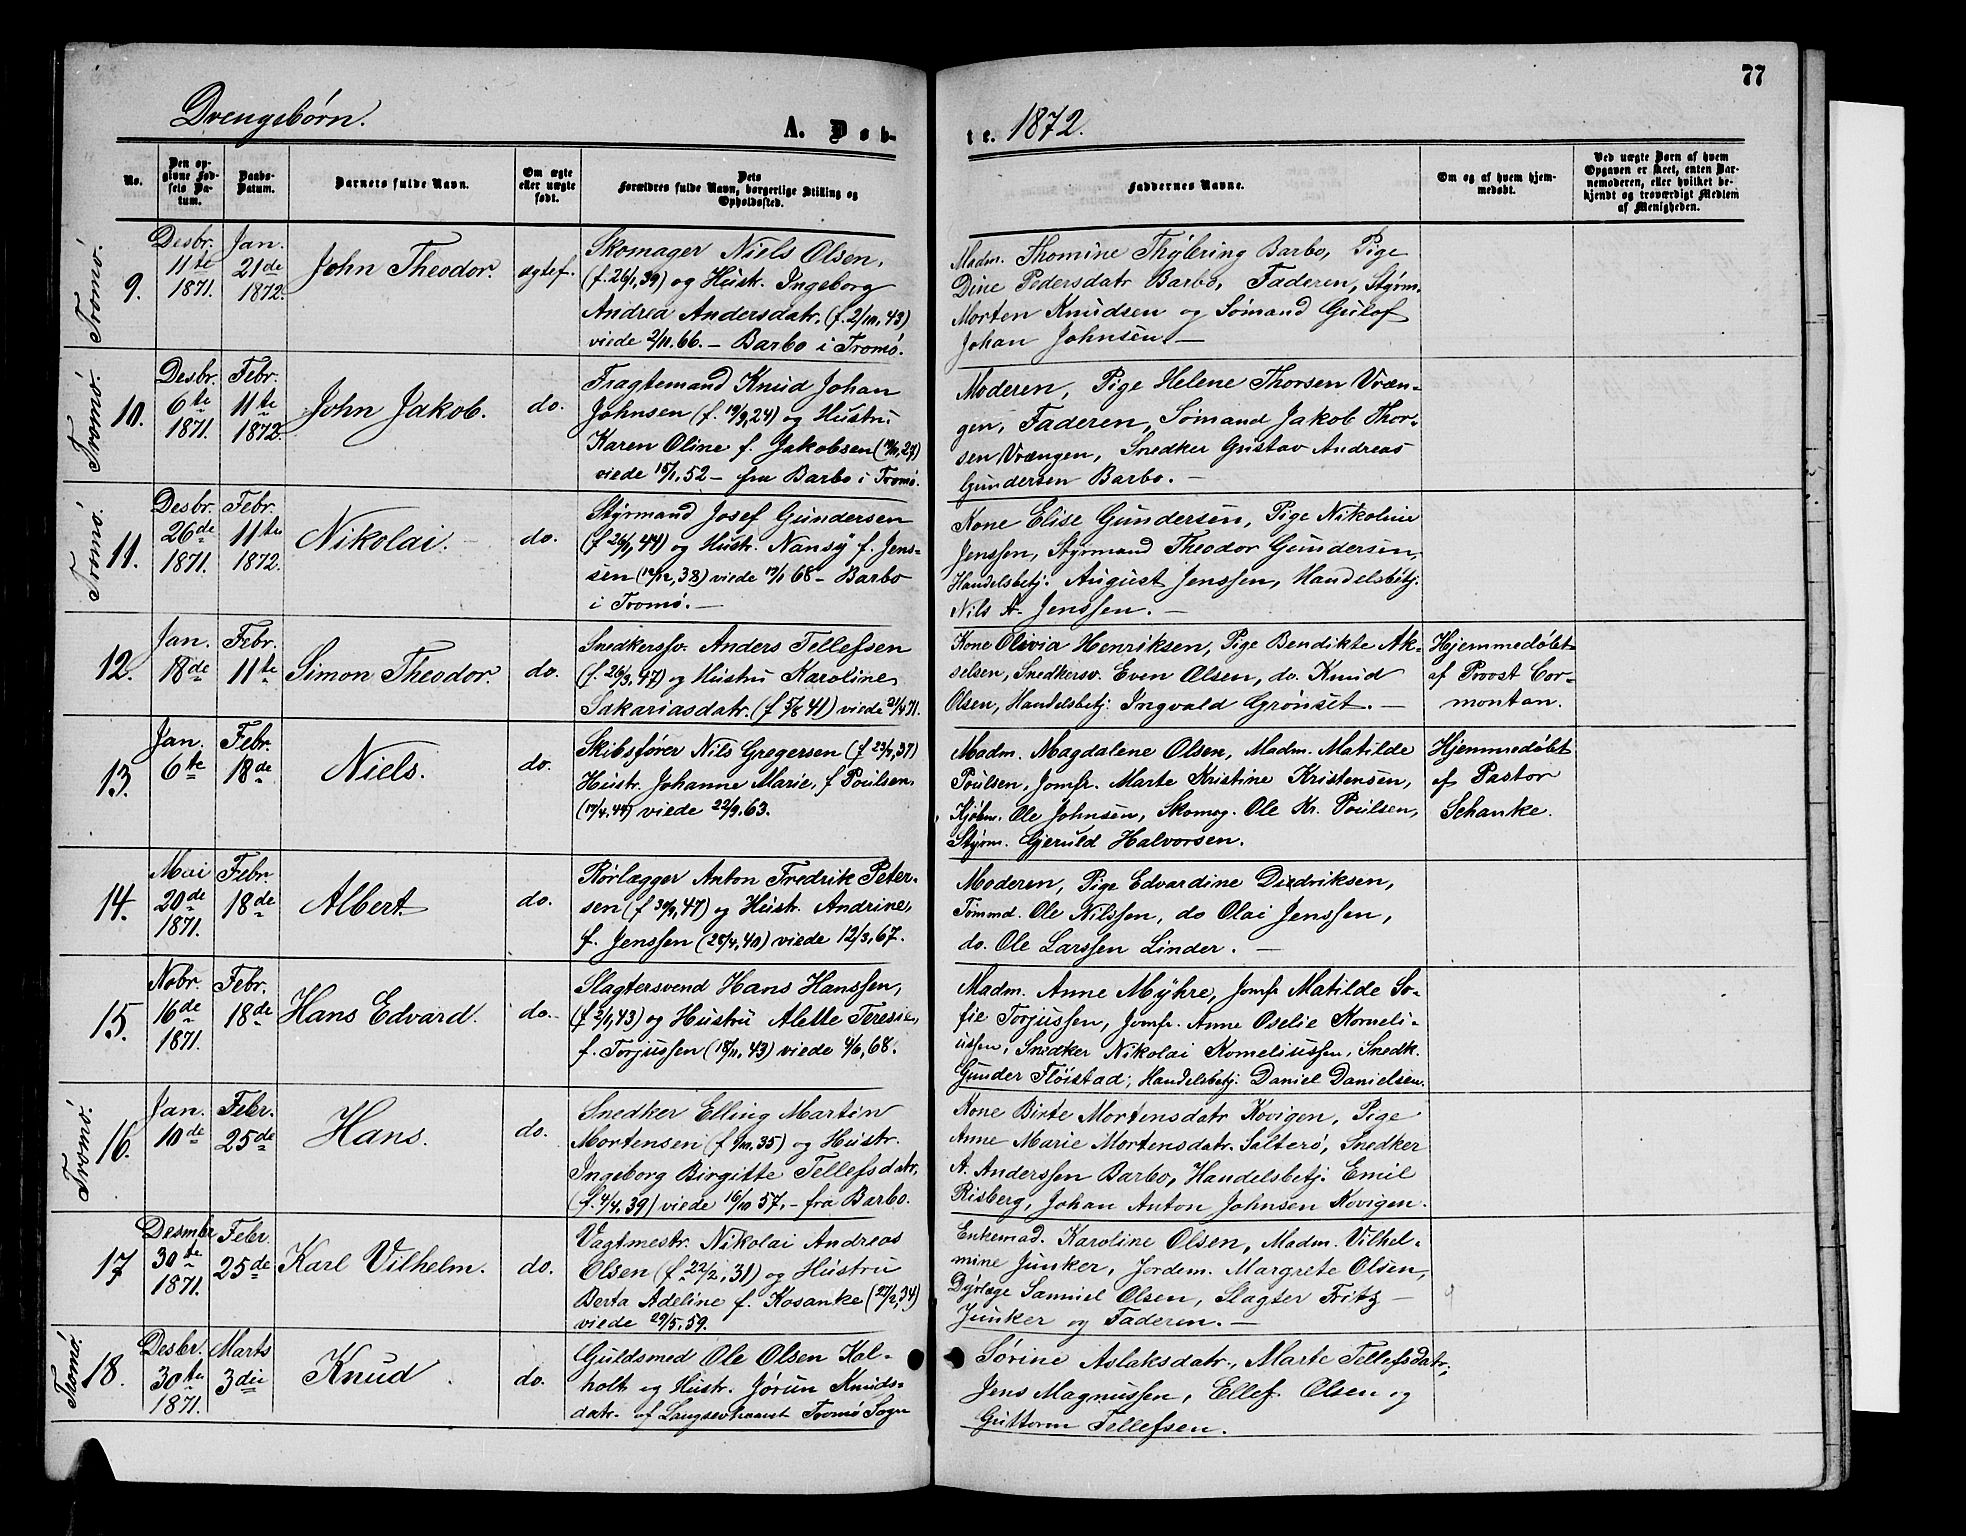 77
Drengebørn.
A. Døb-
te. 1872.
No.
Den op-
givne Fød-
sels Da-
tum.
Daabs-
Datum.
Barnets fulde Navn.
Om ægte
eller uægte
født.
Dets
Forældres fulde Navn, borgerlige Stilling og
Opholdssted.
Faddernes Navne.
Om og af hvem hjem-
medøbt.
Ved uægte Børn af hvem
Opgaven er skeet, enten Bar-
nemoderen, eller hvilket be-
kjendt og troværdigt Medlem
af Menigheden.
Tromø.
9.
Desbr.
11te
1871.
Jan.
21de
1872.
John Theodor.
ægtef.
Skomager Niels Olsen,
(f. 26/1, 39) og Hustr. Ingeborg
Andrea Andersdatr. (f. 2/10, 43)
viede 2/11. 66. – Barbo i Tromø.
Madm. Thomine Thybring Barbo, Pige
Dine Pedersdatr Barbo, Faderen, Styrm.
Morten Knudsen og Sømand Gulof
Johan Johnsen. –
Tromø.
10.
Desbr.
6te
1871.
Febr.
11te
1872.
John Jakob.
do.
Fragtemand Knud Johan
Johnsen (f. 19/9, 24) og Hustru
Karen Oline f. Jakobsen
viede 15/1, 52 – fra Barbo i Tromø.
Moderen, Pige Helene Thorsen Vræn-
gen, Faderen, Sømand Jakob Thor-
sen Vrængen, Snedker Gustav Andreas
Gundersen Barbo. –
Tromø.
11.
Desbr.
26de
1871.
Febr.
11te
1872.
Nikolai. –
do.
Styrmand Josef Gundersen
(f. 26/1, 44) og Hustr. Nansy f. Jens-
sen (12/12, 38) viede 68 – Barbo
i Tromø. –
Kone Elise Gundersen, Pige Nikoline
Jenssen, Styrmand Theodor Gundersen,
Handelsbetj. August Jenssen, Handelsbetj.
Nils A. Jenssen. –
12.
Jan.
18de
Febr.
11te
Simon Theodor.
do.
Snedkersv. Anders Tellefsen
(f. 26/3, 47) og Hustru Karoline
Sakariasdatr. (f 5/8 41) viede 21/4 71.
Kone Olivia Henriksen, Pige Bendikte Ak-
selsen, Snedkersv. Even Olsen, do. Knud
Olsen, Handelsbetj. Ingvald Grønset. –
Hjemmedøbt
af Provst Cor-
montan.
13.
Jan.
6te
Febr.
18de
Niels.
do.
Skibsfører Nils Gregersen (f 23/7, 37)
Hustr. Johanne Marie, f Poulsen,
(17/4, 44) viede 22/9. 63.
Madm. Magdalene Olsen, Madm. Matilde
Poulsen, Jomfr. Marte Kristine Kristensen,
Kjøbm. Ole Johnsen, Skomag. Ole Kr. Poulsen,
Styrm. Gjeruld Halvorsen.
Hjemmedøbt
af Pastor
Schanke.
14.
Mai
20de
1871.
Febr.
18de
Albert.
do.
Rørlægger Anton Fredrik Peter-
sen (f 47) og Hustr. Andrine,
f. Jenssen (28/4, 40) viede 12/3, 67.
Moderen, Pige Edvardine Didriksen,
Tømmd. Ole Nilssen, do Olai Jenssen,
do. Ole Larssen Linder. –
15.
Nobr.
16de
1871.
Febr.
18de
Hans Edvard.
do.
Slagtersvend Hans Hanssen,
(f 2/1, 43) og Hustru Alette Teresie,
f. Torjussen (18/11, 43) viede 4/6, 68.
Madm. Anne Myhre, Jomfr Matilde So-
fie Torjussen, Jomfr. Anne Oselie Korneli-
ussen, Snedker Nikolai Korneliussen, Snedk.
Gunder Fløistad, Handelsbetj. Daniel Danielsen.
Tromø.
16.
Jan.
10de
Febr.
25de
Hans.
do.
Snedker Elling Martin
Mortensen (f 35) og Hustr.
Ingeborg Birgitte Tellefsdatr.
(f. 4/4, 39) viede 16/10 57. – fra Barbo.
Kone Birte Mortensdatr Kovigen, Pige
Anne Marie Mortensdatr. Salterø, Snedker
A. Anderssen Barbo, Handelsbetj. Emil
Risberg, Johan Anton Johnsen Kovigen.
17
Desmbr
30te
1871.
Febr.
25de
Karl Vilhelm.
do.
Vagtmestr. Nikolai Andreas
Olsen (f. 22/2, 31) og Hustru
Berta Adeline f. Kosanke (27/2, 34)
viede 29/5. 59.
Enkemad. Karoline Olsen, Madm. Vilhel-
mine Junker, Jordem. Margrete Olsen,
Dyrlæge Samuel Olsen, Slagter Fritz –
Junker og Faderen. –
Tromø.
18.
Desbr.
30te
1871.
Marts
3die
Knud.
do.
Guldsmed Ole Olsen Kal-
holt og Hustr. Jørun Knuds-
datr. af Tromø Sogn
Sørine Aslaksdatr., Marte Tellefsdatr,
Jens Magnussen, Ellef Olsen og
Guttorm Tellefsen.